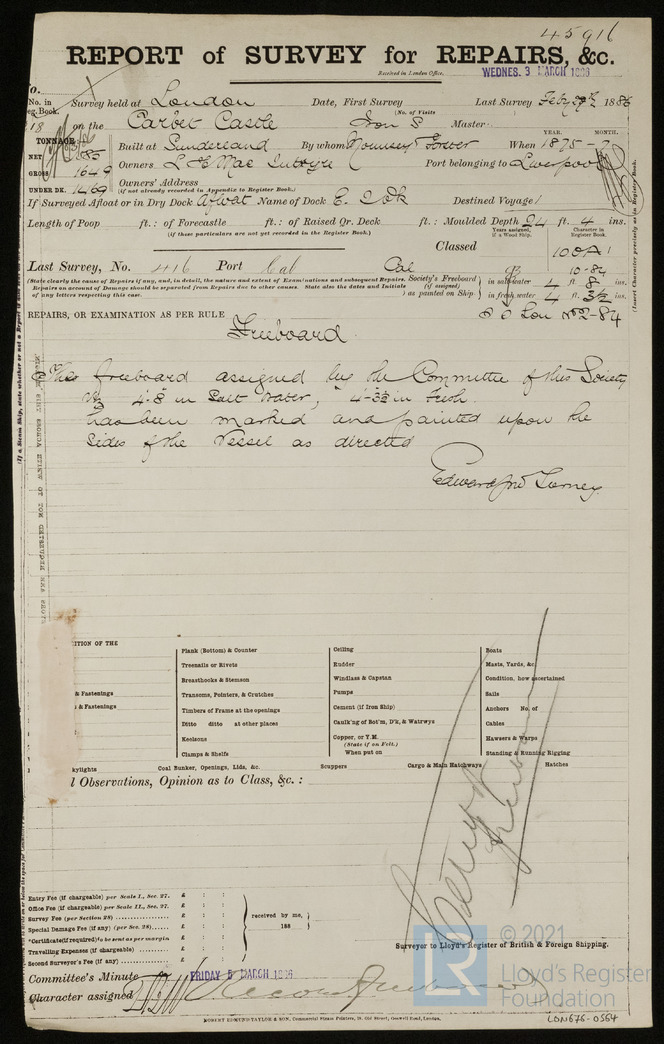 45916
REPORT of SURVEY for REPAIRS, &c.
Received in London Office. WEDNES. 3 MARCH 1886
No. in Reg. Book. Survey held at London Date, First Survey Last Survey Feby 1886
(No. of Visits )
18 on the Carbet Castle Iron S Master
TONNAGE
NET
GROSS 1649
UNDER DK. 1469
Built at Sunderland By whom Mounsey Foster When 1875 - 7
YEAR. MONTH.
Owners L H Mac Intyre Port belonging to Liverpool
Owners' Address
(if not already recorded in Appendix to Register Book.)
If Surveyed Afloat or in Dry Dock Afloat Name of Dock E. I Dk Destined Voyage
Length of Poop ft.: of Forecastle ft.: of Raised Qr. Deck ft.: Moulded Depth 24 ft. 4 ins.
(if these particulars are not yet recorded in the Register Book.)
Years assigned, if a Wood Ship. Character in Register Book.
Classed 100A1
Last Survey, No. 416 Port Cal Cal 10-84
(State clearly the cause of Repairs if any, and, in detail, the nature and extent of Examinations and subsequent Repairs.
Repairs on account of Damage should be separated from Repairs due to other causes. State also the dates and Initials
of any letters respecting this case.
Society's Freeboard (if assigned) as painted on Ship. in salt water 4 ft. 8 ins.
in fresh water 4 ft. 3½ ins.
REPAIRS, OR EXAMINATION AS PER RULE Lon No 2-84
Freeboard.
The freeboard assigned by the Committee of this Society
viz 4-8 in Salt Water, 4-3½ in Fresh
has been marked and painted upon the
sides of the Vessel as directed
(If a Steam Ship, state whether or not a Report
(Insert Character precisely as in Register Book.
ITION OF THE
& Fastenings
& Fastenings
kylights
Plank (Bottom) & Counter
Treenails or Rivets
Breasthooks & Stemson
Transoms, Pointers, & Crutches
Timbers of Frame at the openings
Ditto ditto at other places
Keelsons
Clamps & Shelfs
Coal Bunker, Openings, Lids, &c.
Ceiling
Rudder
Windlass & Capstan
Pumps
Cement (if Iron Ship)
Caulk'ng of Bot'm, D'k, & Watrwys
Copper, or Y.M.
(State if on Felt.)
When put on
Scuppers
Boats
Masts, Yards, &c.
Condition, how ascertained
Sails
Anchors No. of
Cables
Hawsers & Warps
Standing & Running Rigging
Cargo & Main Hatchways
Hatches
l Observations, Opinion as to Class, &c. :
Entry Fee (if chargeable) per Scale I., Sec. 27. £ : :
Office Fee (if chargeable) per Scale II., Sec. 27. £ : :
Survey Fee (per Section 28) £ : :
Special Damage Fee (if any) (per Sec. 28) £ : :
*Certificate (if required) to be sent as per margin £ : :
Travelling Expenses (if chargeable) £ : :
Second Surveyor's Fee (if any) £ : :
received by me,
188
Surveyor to Lloyd's Register of British & Foreign Shipping.
Committee's Minute FRIDAY 5 MARCH 1886
Character assigned
ROBERT EDMUND TAYLOR & SON, Commercial Steam Printers, 19, Old Street, Goswell Road, London.
© 2021
LR
Lloyd's Register
Foundation
LON676-0564